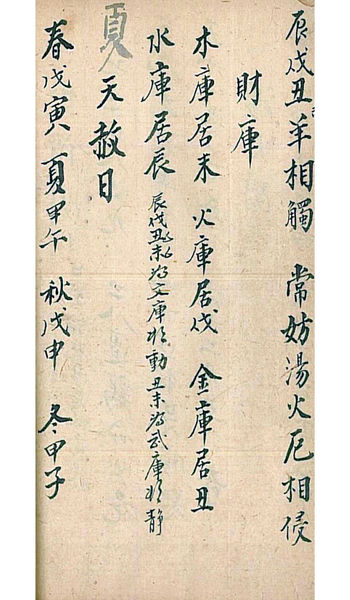 辰戌丑羊相觸 常妨湯火厄相侵
財庫
木庫居未 火庫居戌 金庫居丑
水庫居辰 辰戌丑未為文庫於動丑未為武庫於静
天赦日
春戊寅 夏甲午 秋戊申 冬甲子
夏